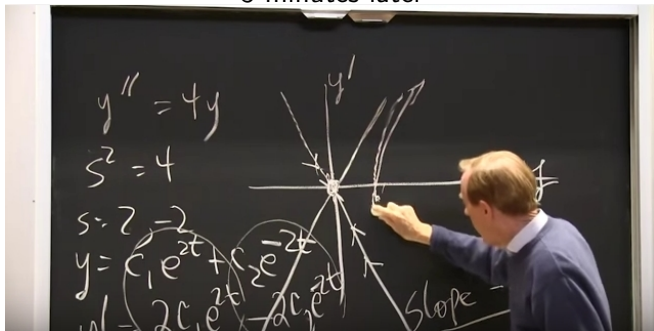 y'' = 4y
s² = 4
s = 2 -2
y = c₁e²ᵗ + c₂e⁻²ᵗ
2c₁e²ᵗ -2c₂e²ᵗ
y'
y
Slope